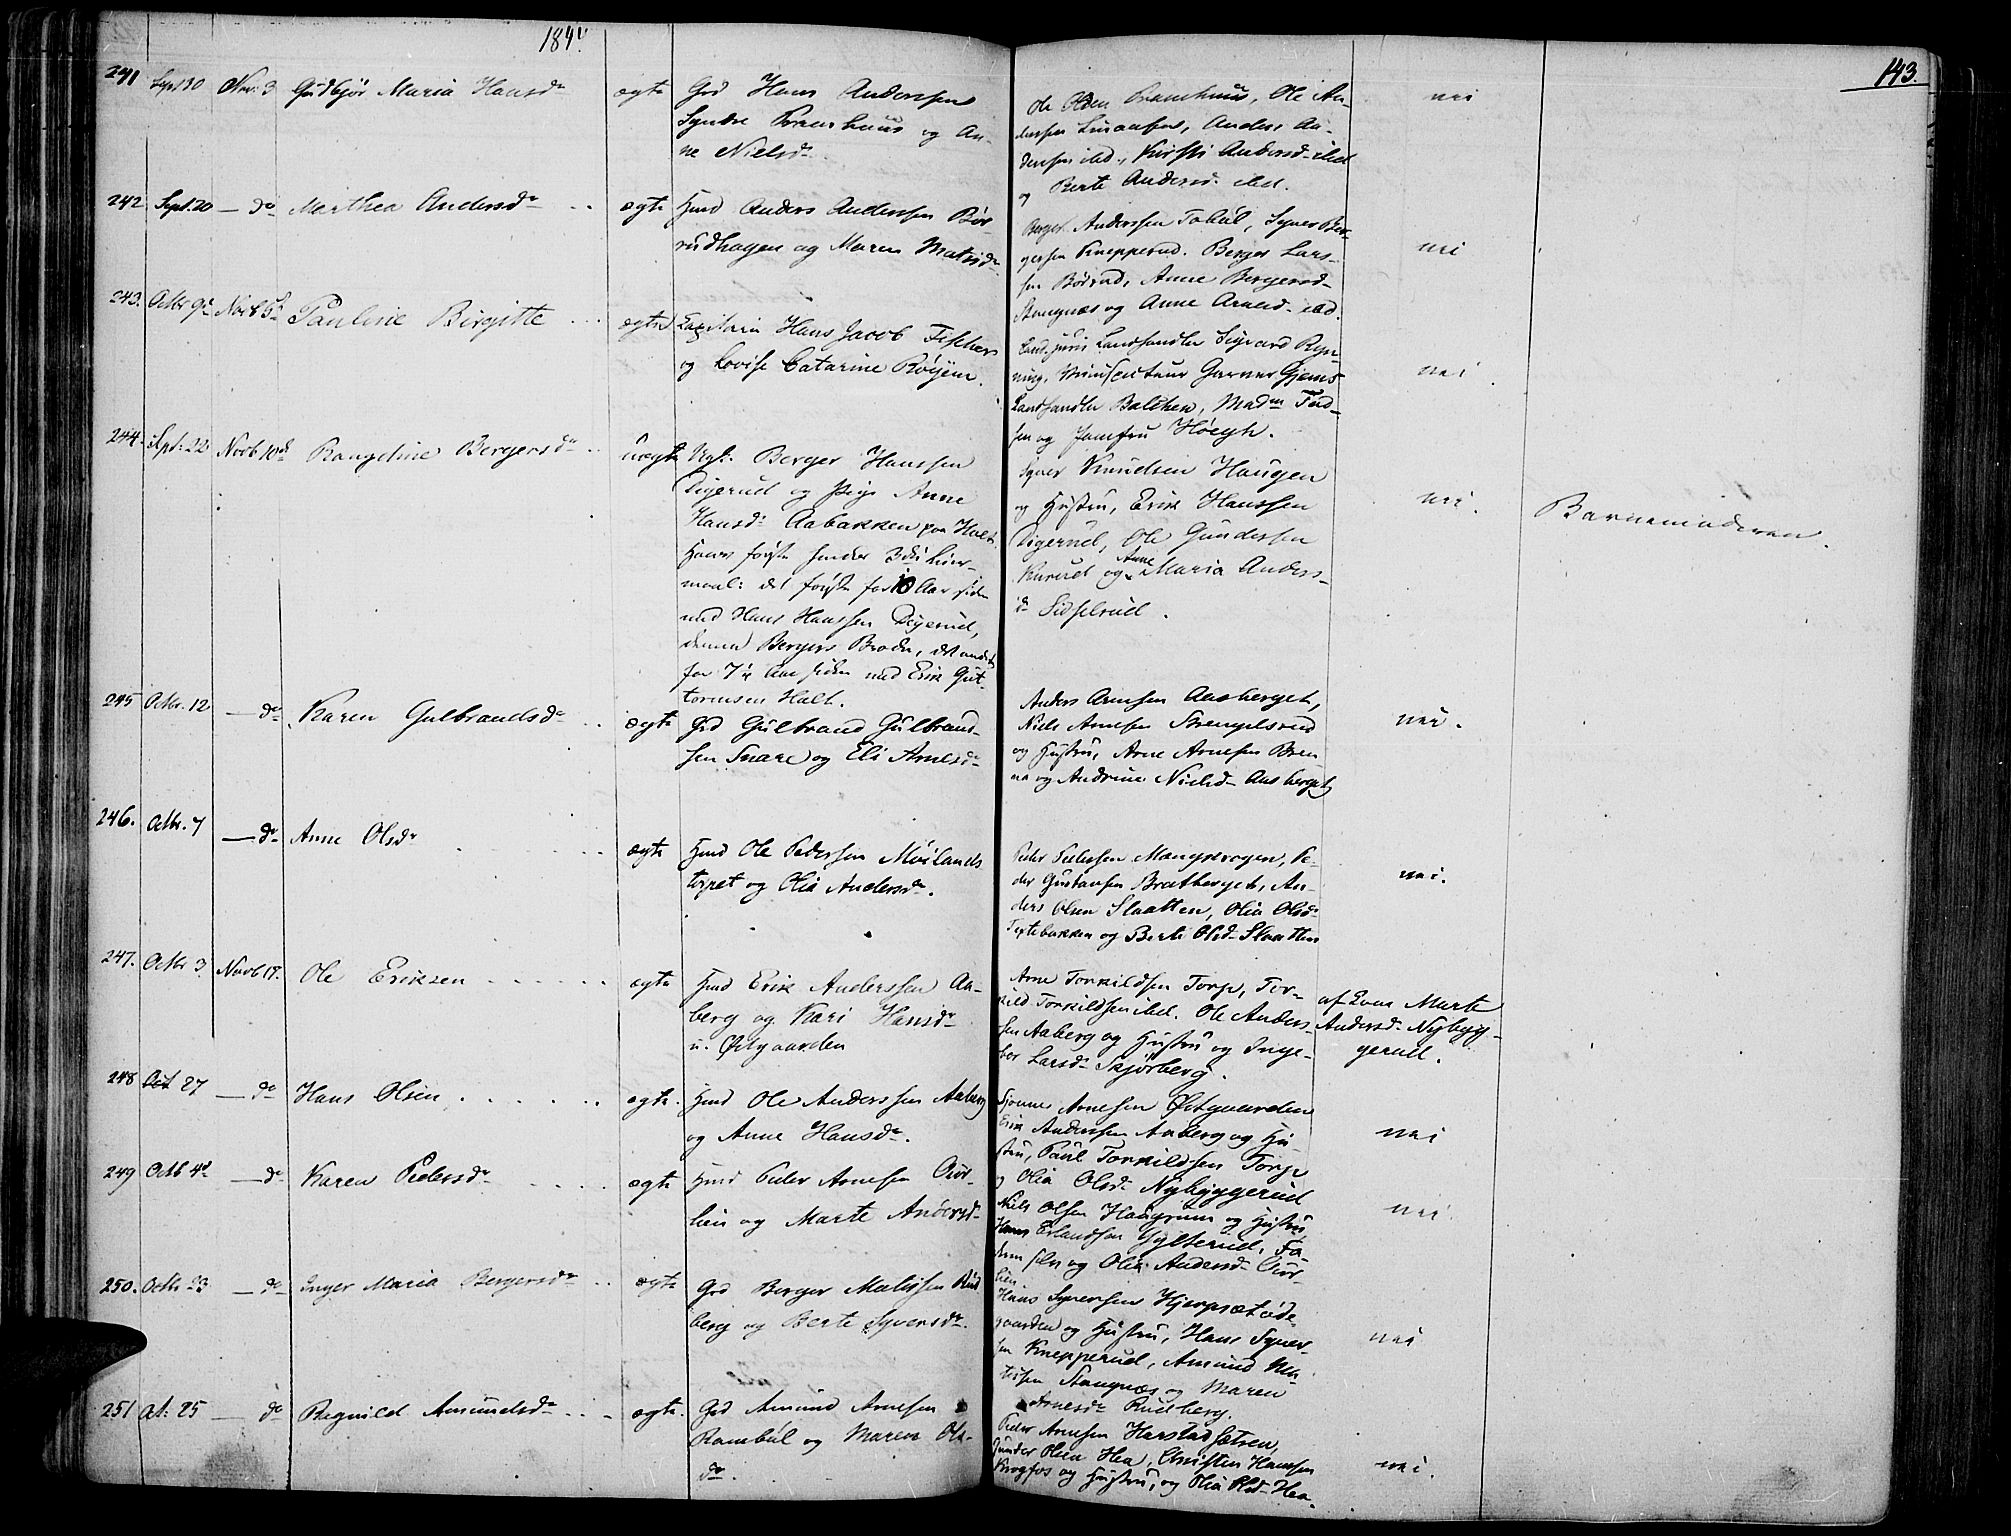 143.
241 Sept 30 Nov: 3 Gudbjør Maria Hansd. ægte Grd Hans Anderssen
Syndre og An-
ne Nielsd.
Ole Olsen Ole An-
derssen Anders An-
derssen ibd., Kirsti Andersd. ibd
og Berte Andersd. ibd.
nei
242 Sept. 20 — do Marthea Andersd. ægte Hmd Anders Anderssen Bør-
rudhagen og Maren
Berger Anderssen Syver Ber-
gersen Knepperud. Berger Lars-
sen Børrud, Anne Bergersd.
Stangnæs og Anne Arnesd. ibd.
nei
243. Octbr 9de Novb 5te Pauline Birgitte ægte Capitain Hans Jacob Fischer
og Lovise Catarine Røyem.
Cand. juris Landhandler Sigvard Ryn-
ning, Garver Gjems
Landhandler Balchen, Madm
sen og Jomfru Høegh.
nei
244. Sept: 22 Novb 10de Rangdine Bergersd. uægte Ugk. Berger Hanssen
Digerud og Pige Anne
Hansd. Aabakken paa Holt.
Hans første hendes 3die Leier-
maal: det første for 10 Aar siden
med Hans Hanssen Digerud,
denne Bergers Broder, det andet
for 7 1/2 Aar siden med Erik Gut-
tormsen Holt.
Syver Knudsen Haugen
og Hustru, Erik Hanssen
Digerud, Ole Gundersen
Kurud og Anne Maria Anders-
d. Sidselrud.
nei.
Barnemoderen.
245 Octbr. 12 — do Karen Gulbrandsd. ægte Grd Gulbrand Gulbrand-
sen Snare og Eli Arnesd.
Anders Arnesen Aasberget,
Niels Arnesen Strengelsrud
og Hustru, Arne Arnesen Bren-
na og Andrine Nielsd. Aasberget
nei.
246. Octbr. 7 — do Anne Olsd. ægte Hmd Ole Pedersen
torpet og Olia Andersd.
Peder Pedersen Mangskogen, Pe-
der Gustavsen Bratberget, An-
ders Olsen Slaatten, Olia Olsd.
og Berte Olsd. Slaatten
nei.
247. Octbr 3. Novb 17. Ole Eriksen ægte Hmd Erik Anderssen Aa-
berg og Kari Hansd.
u. Østgaarden
Arne Torkildsen Torp, Tor-
kild Torkildsen ibd. Ole Anders-
sen Aaberg og Hustru og Inge-
bor Larsd. Skjørberg.
af Enne Marte
Andersd. Nybyg-
gerud.
248 Oct 27 — do Hans Olsen ægte. Hmd Ole Anderssen Aaberg
og Anne Hansd.
Arnesen Østgaarden
Erik Anderssen Aaberg og Hu-
stru, Paul Torkildsen Torp
og Olia Olsd. Nybyggerud
nei
249 Octb 4de — do Karen Pedersd. ægte Hmd Peder Arnesen Aur-
lien og Marte Andersd.
Niels Olsen Haugrum og Hustru,
Hans Erlandsen Gylterud, Fa-
deren selv og Olia Andersd. Aur-
lien.
nei.
250. Octbr 23 — do Inger Maria Bergersd. ægte Grd Berger Madssen Rud-
berg og Berte Syversd.
Hans Syversen Hjerpsetøde-
gaarden og Hustru, Hans Syver-
sen Knepperud, Amund
Stangnæs og Maren
Arnesd. Rudberg.
nei
251 Oct: 25 — do Ragnild Amundsd. ægte. Grd Amund Arnesen
Rambøl og Maren Ols-
d.
Peder Arnesen Harstadsætren,
Gunder Olsen Hea, Christen Hansen
Krogfos og Hustru, og Olia Olsd. Hea.
nei.